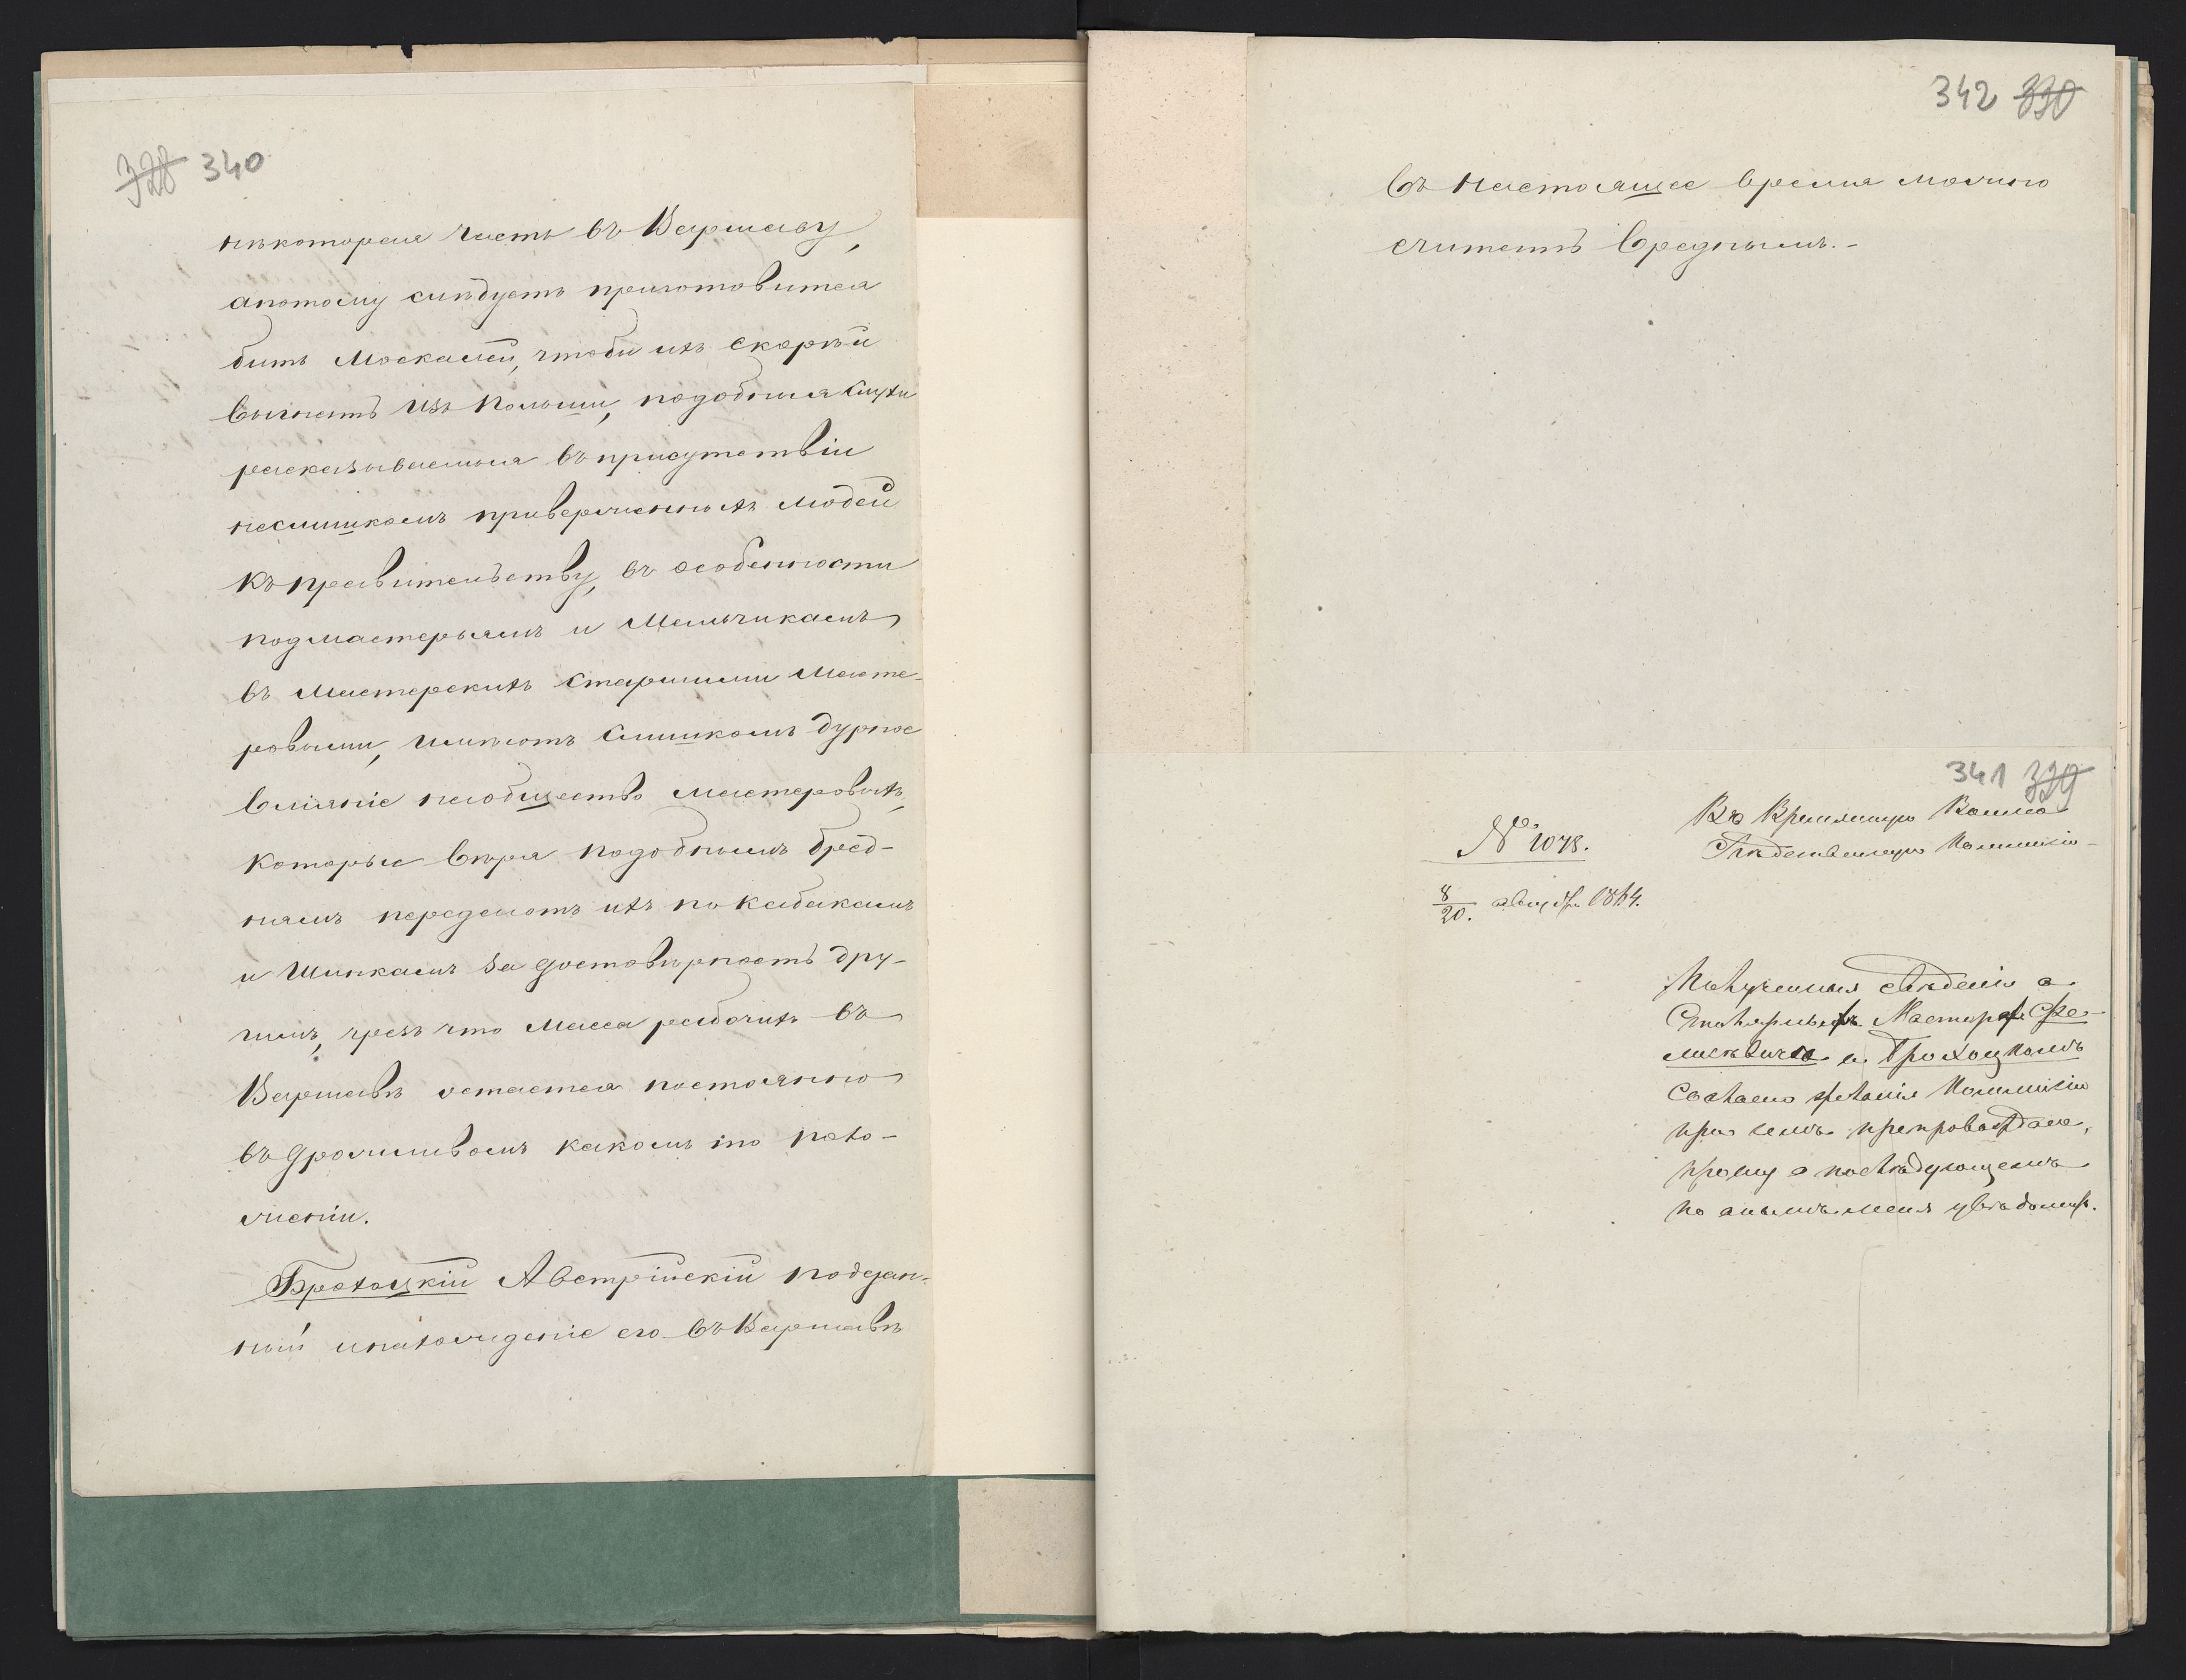 328 340
нѣкоторая часть въ Варшаву,
апотому слѣдуетъ приготовится
бить Москалей, чтоби ихъ скорѣй
выгнать изъ Польши, подобныя слухи
расказываемыя въ присутствіи
неслишкомъ приверженныхъ людей
къ правительству, въ особенности
подмастерьямъ и Мальчикамъ
въ Мастерскихъ Старшими Масте-
ровыми, имѣютъ Слишкомъ дурное
вліяніе наобщество мастеровыхъ,
которые вѣря подобнымъ бред-
нямъ передаютъ ихъ по Кабакамъ
и Шинкамъ за достовѣрность дру-
гимъ, чрезъ что Масса рабочихъ въ
Варшавѣ остается постоянно
въ дрожливомъ какомъ то поло-
женіи.
Брохоцкій Австрійскій поддан-
ный инахожденіе его въ Варшавѣ
342 330
въ настоящее время можно
считать вреднымъ.-
341 329
№ 1078.
8/20. августа 1864.
Въ Временную Военно
Слѣдственную Коммисію
Полученныя свѣденія о
Столярныхъ Мастерахъ
и Брохоцкомъ
Коммисіи
при семъ препровождаю,
прошу о послѣдующемъ
по онымъ меня увѣдомить.